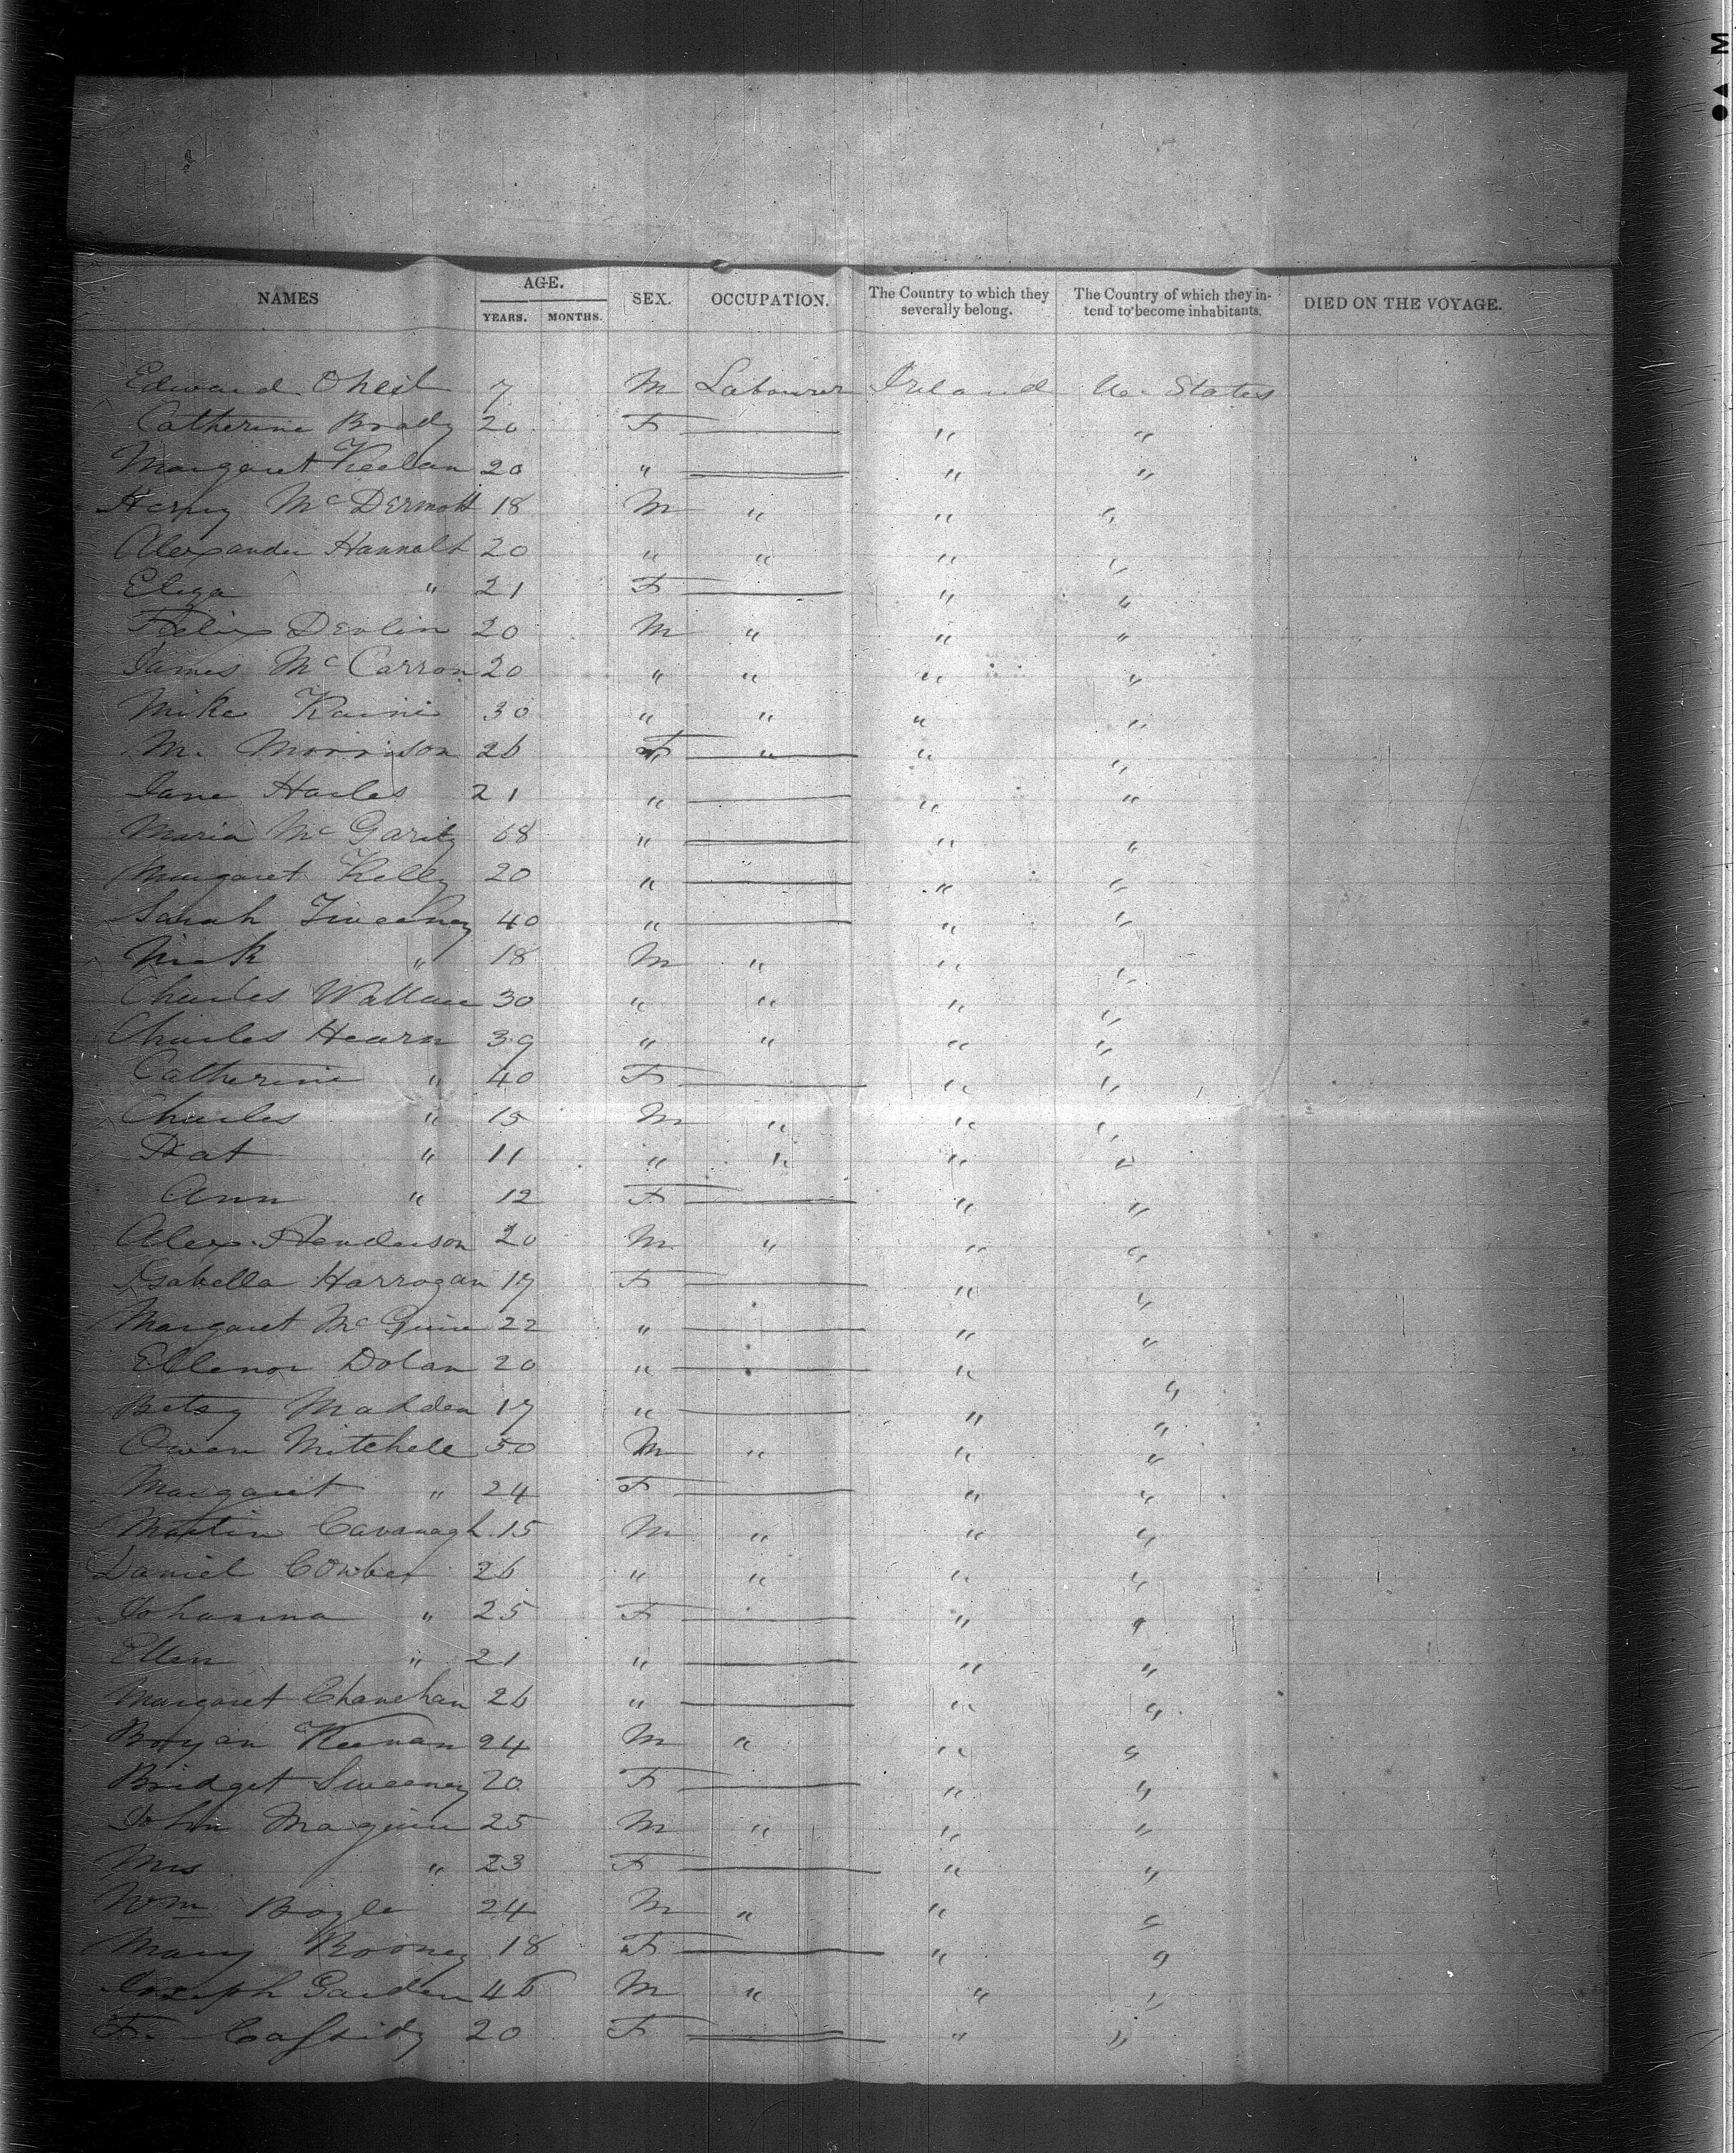 NAMES AGE. YEARS. MONTHS. SEX. OCCUPATION. The Country to which they severally belong. The Country of which they intend to become inhabitants. DIED ON THE VOYAGE.
Edward Oneil 7 M Labourer Ireland U. States
Catherine Brady 20 F — " "
Margaret Keelan 20 " — " "
Henry McDermott 18 M " " "
Alexander Hannah 20 " " " "
Eliza " 21 F — " "
Felix Devlin 20 M " " "
James McCarron 20 " " " "
Mike Kaine 30 " " " "
M. Morrison 26 F " " "
Jane Hailes 21 " — " "
Maria McGarity 68 " — " "
Margaret Kelly 20 " — " "
Sarah Sweeney 40 " — " "
Mick " 18 M " " "
Charles Wallace 30 " " " "
Charles Hearn 39 " " " "
Catherine " 40 F — " "
Charles " 15 M " " "
Pat " 11 " " " "
Ann " 12 F — " "
Alex. Henderson 20 M " " "
Isabella Harrogan 17 F — " "
Margaret McGuire 22 " — " "
Ellenor Dolan 20 " — " "
Betsy Madden 17 " — " "
Owen Mitchele 50 M " " "
Margaret " 24 F — " "
Martin Cavanagh 15 M " " "
Daniel 26 " " " "
Johanna " 25 F — " "
Ellen " 21 " — " "
Margaret 26 " — " "
Bryan Keenan 24 M " " "
Bridget Sweeney 20 F — " "
John Maguire 25 M " " "
Mrs " 23 F — " "
Wm Boyle 24 M " " "
Mary Rooney 18 F — " "
Joseph Garden 46 M " " "
F. Cassidy 20 F — " "
M